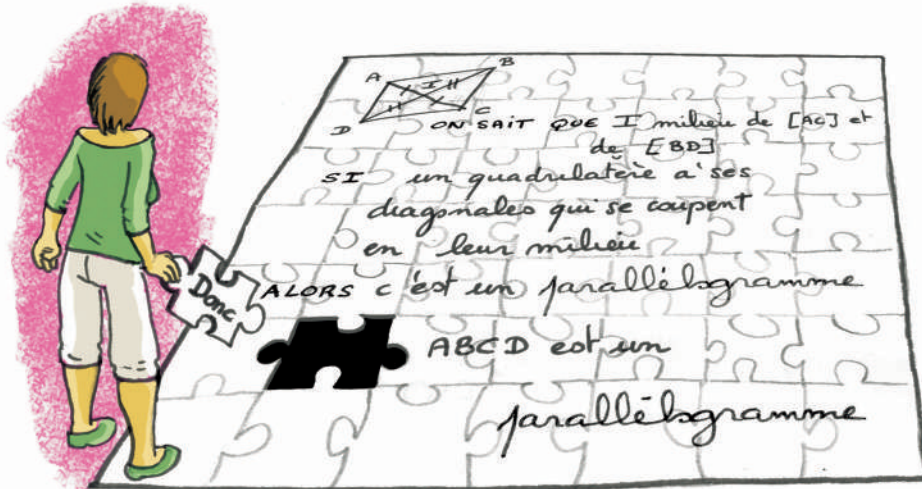 B
A
I
D
C
ON SAIT QUE I milieu de [AC] et
de [BD]
SI un quadrilatère a ses
diagonales qui se coupent
en leur milieu
Donc
ALORS c'est un parallélogramme
ABCD est un
parallélogramme